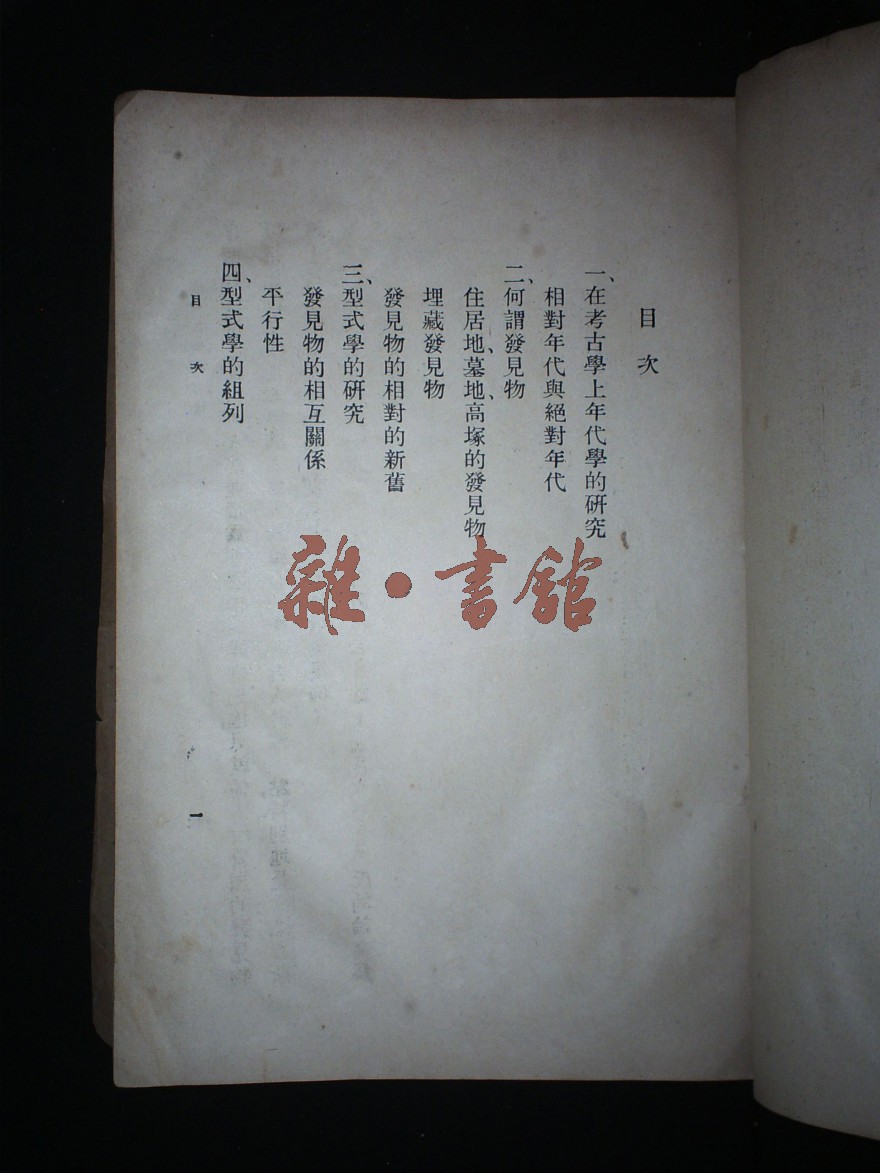 目次
一、在考古學上年代學的研究
相對年代與絕對年代
二、何謂發見物
住居地、墓地、高塚的發見物
埋藏發見物
發見物的相對的新舊
三、型式學的研究
發見物的相互關係
平行性
四、型式學的組列
目次
一
雜·書館